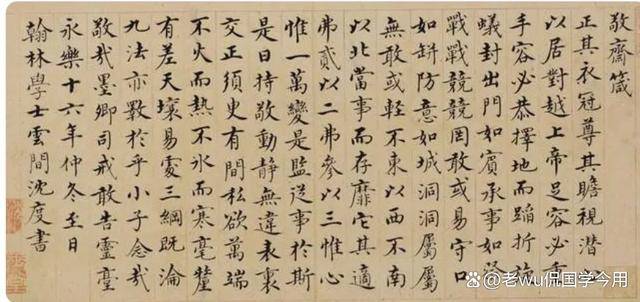 敬齋箴
正其衣冠尊其瞻視潛心
以居對越上帝足容必重
手容必恭擇地而蹈折旋
蟻封出門如賓承事如祭
戰戰兢兢罔敢或易守口
如缾防意如城洞洞屬屬
無敢或輕不東以西不南
以北當事而存靡它其適
弗貳以二弗參以三惟心
惟一萬變是監從事於斯
是曰持敬動靜無違表裏
交正須臾有間私欲萬端
不火而熱不氷而寒毫釐
有差天壤易處三綱既淪
九法亦斁於乎小子念哉
敬哉墨卿司戒敢告靈臺
永樂十六年仲冬至日
翰林學士雲間沈度書
@老wu侃国学今用